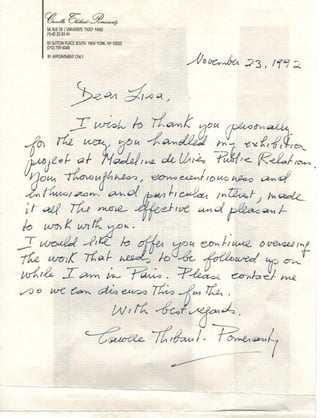 Carole Thibaut-Pomerantz
54 RUE DE L'UNIVERSITE 75007 PARIS
60 SUTTON PLACE SOUTH NEW YORK, NY 10022
BY APPOINTMENT ONLY
November 23, 1992
Dear Lisa,
I wish to thank you personally
for the way you handled my exhibition
project at Madeline de Vries Public Relations.
Your thoroughness, conscientiousness and
enthusiasm and particular interest, made
it all the more effective and pleasant
to work with you.
I would like to offer you continue overseeing
the work that needs to be followed up on
while I am in Paris. Please contact me
so we can discuss this further.
With best regards.
Carolle Thibaut-Pomerantz